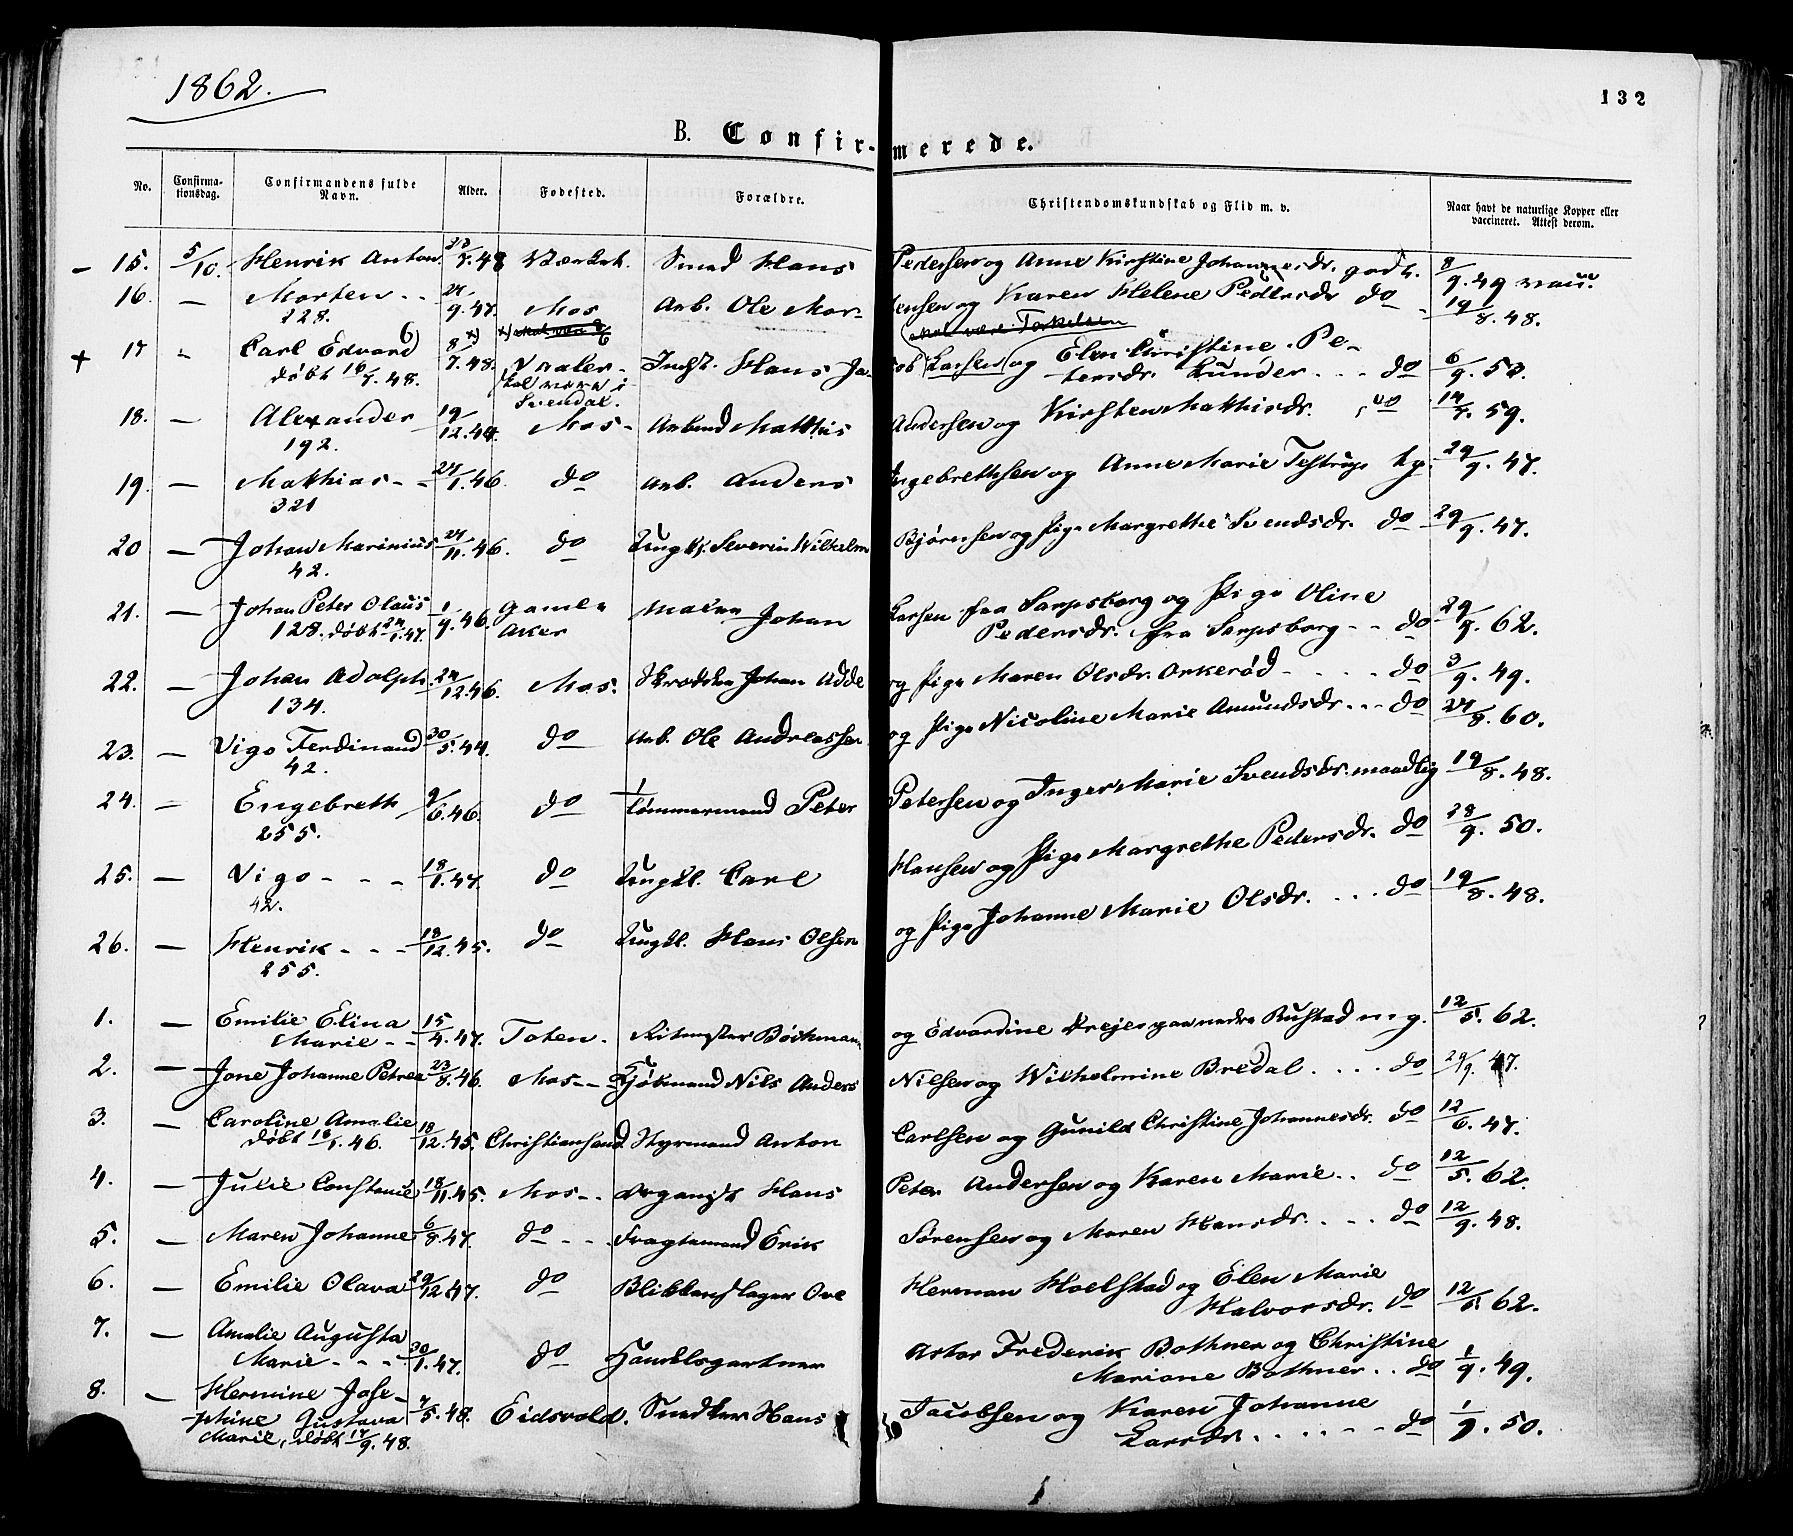 1862.
132
B. Confirmerede.
No. Confirmationsdag. Confirmandens fulde Navn. Alder. Fødested. Forældre. Christendomskundskab og Flid m. v. Naar havt de naturlige Kopper eller vaccineret. Attest derom.
– 15. 5/10. Henrik Anton 7.48 Smed Hans Pedersen og Anne Kirstine Johannesdr. godt. 8/9.49
16. – Morten - - 24/9.47. Mos Arb. Ole Mortensen og Karen Helene Pedersdr do 19/8.48.
228.
+ 17 " Carl Edvard 8/7.48. Vaaler - Indst. Hans Jacob Larsen og Elen Christine Pe-
døbt 16/7.48. skal være i Svendal. tersdr. Lunder - - - do 6/9.53.
skal være Torkelsen
18. – Alexander 19/12.44 Mos - Arbmd Matthis Andersen og Kirsten Matthisdr. do 14/7.59.
192.
19. – Matthias - - 24/1.46. do Arb. Anders Ingebrethsen og Anne Marie Testrup tg. 29/9.47.
321
20 – Johan Marinius 24/11.46. do Ungk. Severin Wilhelm Bjørnsen og Pige Margrethe Svendsdr. do 29/9.47.
42.
21. – Johan Peter Olaus 1/9.46. Gamle Aker Maler Johan Larsen fra Sarpsborg og Pige Oline
128. døbt 24/1.47. Pedersdr. fra Sarpsborg - - do 29/9.62.
22. – Johan Adolph 24/12.46. Mos. Skrædder Johan Adde og Pige Maren Olsdr. Orkerød - - - - do 3/9.49.
134.
23. – Vigo Ferdinand 30/5.44. do Arb. Ole Andreassen og Pige Nicoline Marie Amundsdr. - - do 24/8.60.
42.
24. – Engebreth 9/6.46. do Tømmermand Peter Petersen og Inger Marie Svendsdr. maadlig 19/8.48.
255.
25. – Vigo - - - 18/1.47. do Ungkl. Carl Hansen og Pige Margrethe Pedersdr. do 28/9.50.
42.
26. – Henrik - - - 18/12.45. do Ungkl. Hans Olsen og Pige Johanne Marie Olsdr. - - - do 19/8.48.
255.
1. – Emilie Elina Marie - - 15/4.47. Toten. Ritmester Böckmann og Edvardine Rustad mg. 12/5.62.
2. – Jone Johanne Petrea 23/8.46. Mos - - Kjøbmand Nils Anders Nilsen og Wilhelmine Bredal - - - - do 29/9.47.
3. – Caroline Amalie 18/12.45. Christiansand Styrmand Anton Carlsen og Gunild Christine Johannesdr. do 12/6.47.
døbt 18/1.46.
4. – Julie Constance 18/11.45. Mos - - Organist Hans Peter Andersen og Karen Marie - - do 12/5.62.
5. – Maren Johanne 6/8.47. do - - - Fragtemand Erik Sørensen og Maren Hansdr. - - - do 12/9.48.
6. – Emilie Olava 29/12.47. do Blikkenslager Ove Herman Hoelstad og Elen Marie
Halvorsdr. do 12/5.62.
7. – Amalie Augusta Marie - - - 30/1.47. do Handelsgartner Astor Frederik Bothner og Christine
Mariane Bothner - - do 1/9.49.
8. – Hermine Jose-
phine Gustava 7/5.48. Eidsvold. Snedker Hans Jacobsen og Karen Johanne
Marie, døbt 17/9.48. Larsdr. - - - - - - do 1/9.50.